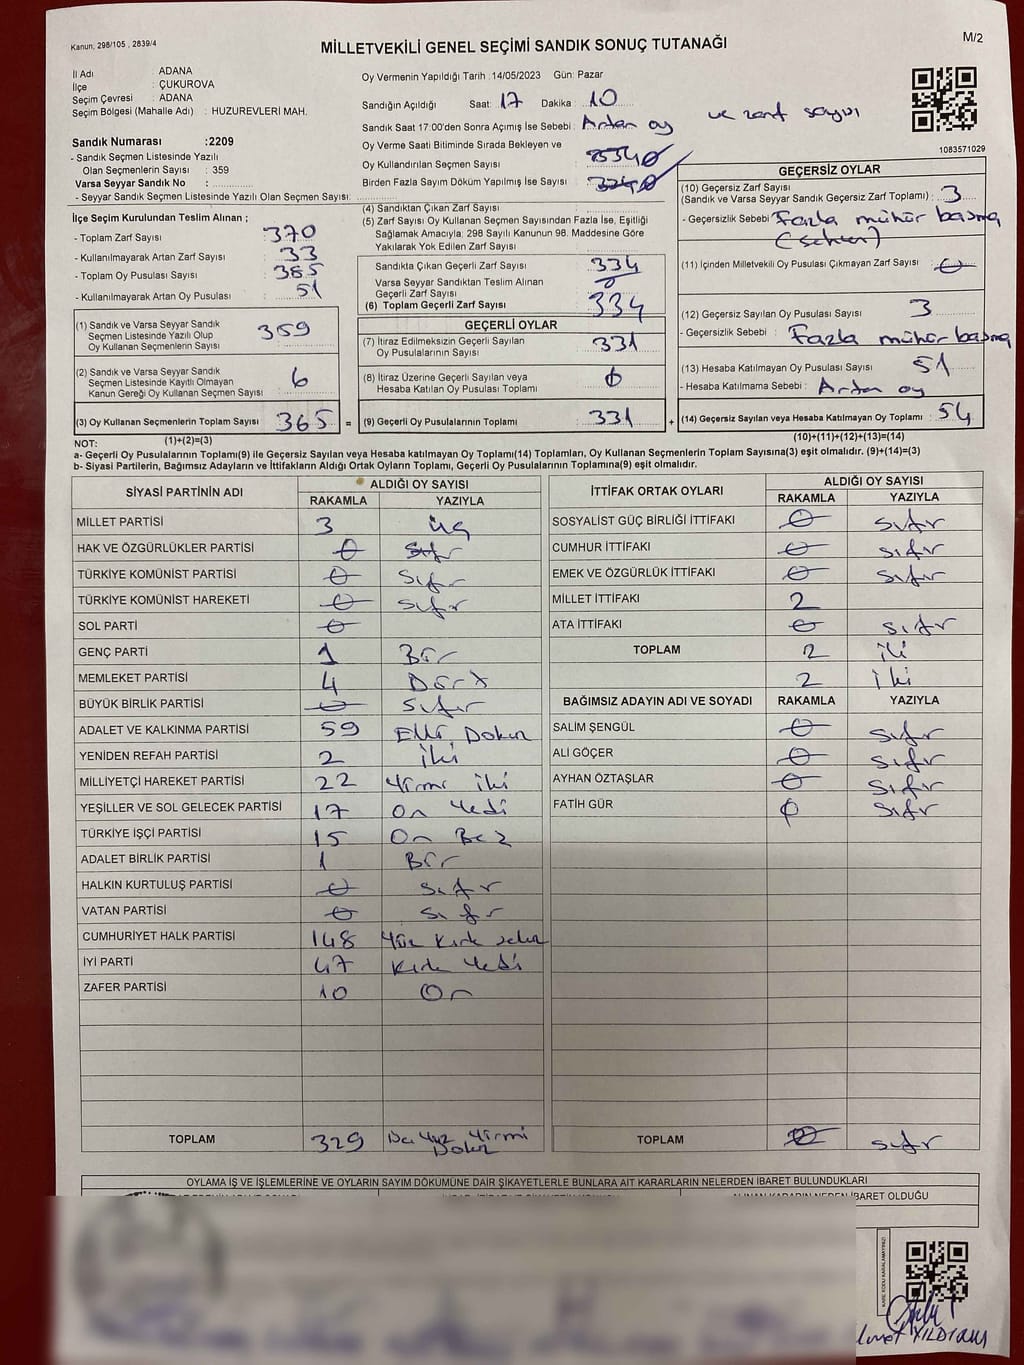 Kanun, 298/105 , 2839/4
MİLLETVEKİLİ GENEL SEÇİMİ SANDIK SONUÇ TUTANAĞI
M/2
İl Adı : ADANA
İlçe : ÇUKUROVA
Seçim Çevresi : ADANA
Seçim Bölgesi (Mahalle Adı) : HUZUREVLERİ MAH.
Sandık Numarası :2209
- Sandık Seçmen Listesinde Yazılı
Olan Seçmenlerin Sayısı : 359
Varsa Seyyar Sandık No :
- Seyyar Sandık Seçmen Listesinde Yazılı Olan Seçmen Sayısı:
Oy Vermenin Yapıldığı Tarih :14/05/2023 Gün: Pazar
Sandığın Açıldığı Saat: 17 Dakika : 10
Sandık Saat 17:00'den Sonra Açımış İse Sebebi : Artan oy ve zarf sayısı
Oy Verme Saati Bitiminde Sırada Bekleyen ve
Oy Kullandırılan Seçmen Sayısı
Birden Fazla Sayım Döküm Yapılmış İse Sayısı :
1083571029
İlçe Seçim Kurulundan Teslim Alınan ;
- Toplam Zarf Sayısı : 370
- Kullanılmayarak Artan Zarf Sayısı : 33
- Toplam Oy Pusulası Sayısı : 385
- Kullanılmayarak Artan Oy Pusulası : 51
(1) Sandık ve Varsa Seyyar Sandık
Seçmen Listesinde Yazılı Olup
Oy Kullanan Seçmenlerin Sayısı : 359
(2) Sandık ve Varsa Seyyar Sandık
Seçmen Listesinde Kayıtlı Olmayan
Kanun Gereği Oy Kullanan Seçmen Sayısı : 6
(3) Oy Kullanan Seçmenlerin Toplam Sayısı : 365 =
(4) Sandıktan Çıkan Zarf Sayısı :
(5) Zarf Sayısı Oy Kullanan Seçmen Sayısından Fazla İse, Eşitliği
Sağlamak Amacıyla; 298 Sayılı Kanunun 98. Maddesine Göre
Yakılarak Yok Edilen Zarf Sayısı :
Sandıkta Çıkan Geçerli Zarf Sayısı : 334
Varsa Seyyar Sandıktan Teslim Alınan
Geçerli Zarf Sayısı : 0
(6) Toplam Geçerli Zarf Sayısı : 334
GEÇERLİ OYLAR
(7) İtiraz Edilmeksizin Geçerli Sayılan
Oy Pusulalarının Sayısı : 331
(8) İtiraz Üzerine Geçerli Sayılan veya
Hesaba Katılan Oy Pusulası Toplamı : 0
(9) Geçerli Oy Pusulalarının Toplamı : 331 +
GEÇERSİZ OYLAR
(10) Geçersiz Zarf Sayısı
(Sandık ve Varsa Seyyar Sandık Geçersiz Zarf Toplamı) : 3
- Geçersizlik Sebebi : Fazla mühür basma
(11) İçinden Milletvekili Oy Pusulası Çıkmayan Zarf Sayısı : 0
(12) Geçersiz Sayılan Oy Pusulası Sayısı : 3
- Geçersizlik Sebebi : Fazla mühür basma
(13) Hesaba Katılmayan Oy Pusulası Sayısı : 51
- Hesaba Katılmama Sebebi : Artan oy
(14) Geçersiz Sayılan veya Hesaba Katılmayan Oy Toplamı : 54
NOT: (1)+(2)=(3)
(10)+(11)+(12)+(13)=(14)
a- Geçerli Oy Pusulasının Toplamı(9) ile Geçersiz Sayılan veya Hesaba katılmayan Oy Toplamı(14) Toplamları, Oy Kullanan Seçmenlerin Toplam Sayısına(3) eşit olmalıdır. (9)+(14)=(3)
b- Siyasi Partilerin, Bağımsız Adayların ve İttifakların Aldığı Ortak Oyların Toplamı, Geçerli Oy Pusulalarının Toplamına(9) eşit olmalıdır.
SİYASİ PARTİNİN ADI ALDIĞI OY SAYISI
RAKAMLA YAZIYLA
MİLLET PARTİSİ 3 üç
HAK VE ÖZGÜRLÜKLER PARTİSİ 0 sıfır
TÜRKİYE KOMÜNİST PARTİSİ 0 sıfır
TÜRKİYE KOMÜNİST HAREKETİ 0 sıfır
SOL PARTİ 0
GENÇ PARTİ 1 Bir
MEMLEKET PARTİSİ 4 Dört
BÜYÜK BİRLİK PARTİSİ 0 sıfır
ADALET VE KALKINMA PARTİSİ 59 Elli Dokuz
YENİDEN REFAH PARTİSİ 2 iki
MİLLİYETÇİ HAREKET PARTİSİ 22 Yirmi iki
YEŞİLLER VE SOL GELECEK PARTİSİ 17 On Yedi
TÜRKİYE İŞÇİ PARTİSİ 15 On Beş
ADALET BİRLİK PARTİSİ 1 Bir
HALKIN KURTULUŞ PARTİSİ 0 sıfır
VATAN PARTİSİ 0 sıfır
CUMHURİYET HALK PARTİSİ 148 Yüz Kırk sekiz
İYİ PARTİ 47 Kırk Yedi
ZAFER PARTİSİ 10 On
TOPLAM 329 Yüz Yirmi
Dokuz
İTTİFAK ORTAK OYLARI ALDIĞI OY SAYISI
RAKAMLA YAZIYLA
SOSYALİST GÜÇ BİRLİĞİ İTTİFAKI 0 sıfır
CUMHUR İTTİFAKI 0 sıfır
EMEK VE ÖZGÜRLÜK İTTİFAKI 0 sıfır
MİLLET İTTİFAKI 2
ATA İTTİFAKI 0 sıfır
TOPLAM 2 iki
2 iki
BAĞIMSIZ ADAYIN ADI VE SOYADI RAKAMLA YAZIYLA
SALİM ŞENGÜL 0 sıfır
ALİ GÖÇER 0 sıfır
AYHAN ÖZTAŞLAR 0 sıfır
FATİH GÜR 0 sıfır
TOPLAM sıfır
OYLAMA İŞ VE İŞLEMLERİNE VE OYLARIN SAYIM DÖKÜMÜNE DAİR ŞİKAYETLERLE BUNLARA AİT KARARLARIN NELERDEN İBARET BULUNDUKLARI
ALINAN KARARIN NEDEN İBARET OLDUĞU
KARE KODU KARALAMAYINIZ!
YILDIRIM